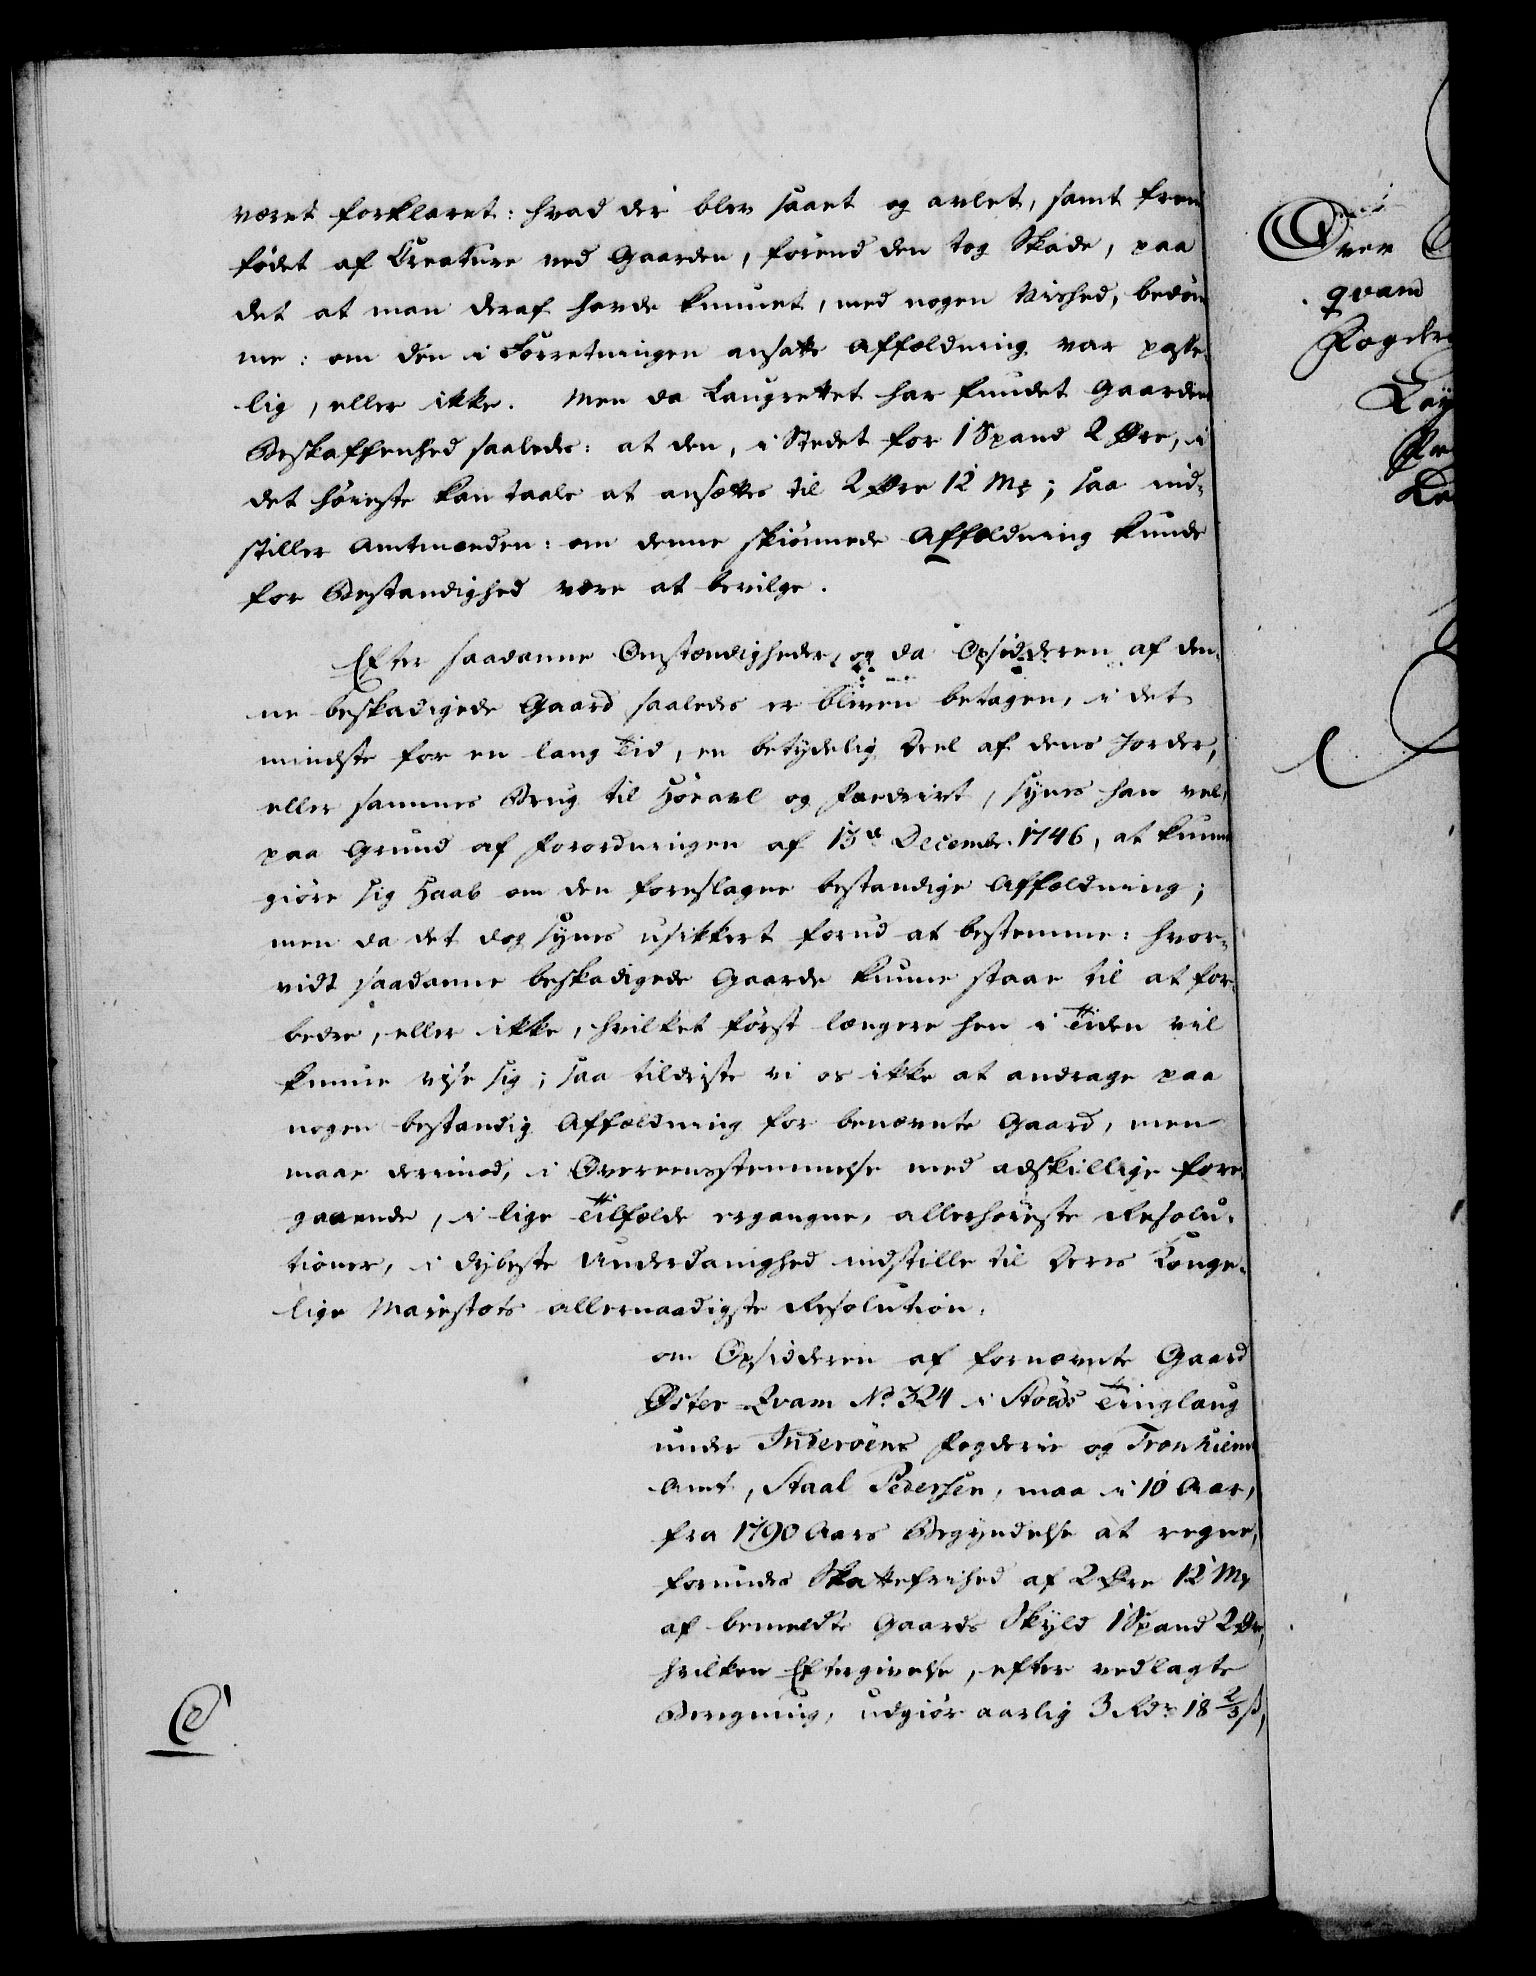 været forklaret: hvad der blev saaet og avlet, samt frem
födet af Creature ved Gaarden, förend den tog Skade, paa
det at man deraf havde kunnet, med nogen Vished, bedöm
me: om den i Forretningen ansatte Affældning var passe-
lig, eller ikke. Men da Laugrettet har fundet Gaardens
Beskaffenhed saaledes: at den, i Stedet for 1 Spand 2 Øre, i
det höieste kan taale at ansættes til 2 Øre 12 Mk; saa ind-
stiller Amtmanden: om denne skiönnede Affældning kunde
for Bestandighed være at bevilge.
Efter saadanne Omstændigheder, og da Opsidderen af den-
ne beskadigede Gaard saaledes er bleven betagen, i det
mindste for en lang Tid, en betydelig Deel af dens Jorder,
eller sammes Brug til Höeavl og Fædrivt, synes han vel,
paa Grund af Forordningen af 13de Decembr. 1746, at kunne
giöre sig Haab om den foreslagne bestandige Affældning;
men da det dog synes usikkert forud at bestemme: hvor-
vidt saadanne beskadigede Gaarde kunne staae til at for-
bedre, eller ikke, hvilket först længere hen i Tiden vil
kunne vise sig; saa tildriste vi os ikke at andrage paa
nogen bestandig Affældning for benævnte Gaard, men
maae derimod, i Overeensstemmelse med adskillige fore-
gaaende, i lige Tilfælde ergangne, allerhöieste Resolu-
tioner, i dybeste Underdanighed indstille til Deres Konge-
lige Majestæts allernaadigste Resolution:
om Opsidderen af fornævnte Gaard
Øster Qvam No 324 i Stöeds Tinglaug
under Inderöens Fogderie og Tronhiems
Amt, Staal Pedersen, maa i 10 Aar,
fra 1790 Aars Begyndelse at regne,
forundes Skattefrihed af 2 Øre 12 Mk
af bemeldte Gaards Skyld 1 Spand 2 Øre,
hvilken Eftergivelse, efter vedlagte
Beregning, udgiör aarlig 3 Rdr 18 2/3 ß,
Over
qvam